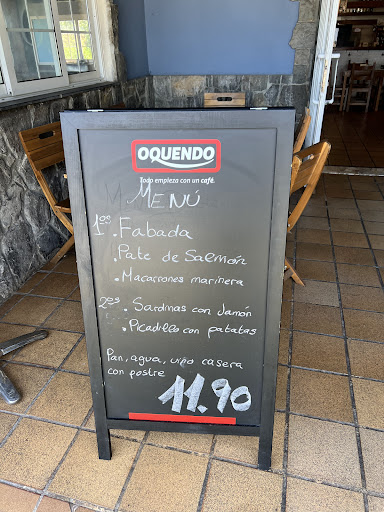 OQUENDO
Todo empieza con un café.
MENÚ
1os
. Fabada
. Pate de Salmón
. Macarrones marinera
2os . Sardinas con Jamón
. Picadillo con patatas
Pan, agua, vino casera
con postre 11.90